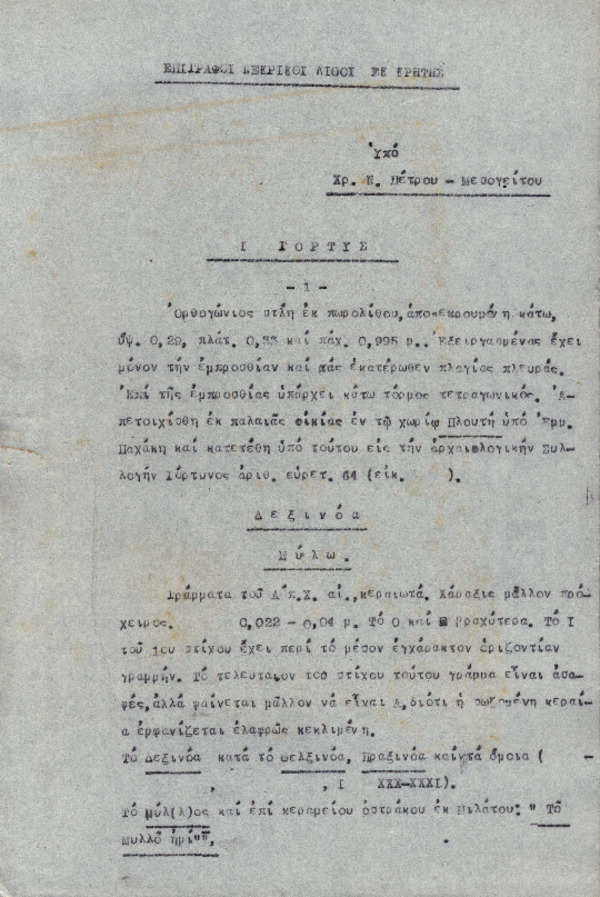 ΕΠΙΓΡΑΦΟΙ ΝΕΚΡΙΚΟΙ ΛΙΘΟΙ ΕΚ ΚΡΗΤΗΣ
Ὑπό
Χρ. Ν. Πέτρου - Μεσογείτου
Ι ΓΟΡΤΥΣ
- 1 -
Ὀρθογώνιος στλη ἐκ πωρολίθου, ἀποκεκρουμένη κάτω,
ὕψ. 0,29, πλάτ. 0,33 καί πάχ. 0,995 μ.. Ἐξειργασμένας ἔχει
μόνον τήν ἐμπροσθίαν καί τάς ἑκατέρωθεν πλαγίας πλευράς.
Ἐπί τῆς ἐμπροσθίας ὑπάρχει κάτω τόρμος τετραγωνικός. Ἀ-
πετοιχίσθη ἐκ παλαιᾶς οἰκίας ἐν τῷ χωρίῳ Πλουτῆ ὑπό Ἐμμ.
Παχάκη καί κατετέθη ὑπό τούτου εἰς τήν ἀρχαιολογικήν Συλ-
λογήν Γόρτυνος ἀριθ. εὑρετ. 64 (εἰκ. ).
Δεξινόα
Μύλω.
Γράμματα τοῦ Α π.Χ. αἰ., κεραιωτά. Χάραξις μᾶλλον πρό-
χειρος. 0,022 - 0,04 μ. Τό Ο καί βραχύτερα. Τό Ι
τοῦ 1ου στίχου ἔχει περί τό μέσον ἐγχάρακτον ὁριζοντίαν
γραμμήν. Τό τελευταῖον τοῦ στίχου τούτου γράμμα εἶναι ἀσα-
φές, ἀλλά φαίνεται μᾶλλον νά εἶναι Α, διότι ἡ σωζομένη κεραί-
α ἐμφανίζεται ἐλαφρῶς κεκλιμένη.
Τό Δεξινόα κατά τό Θελξινόα, Πραξινόα καί τά ὅμοια ( -
, , Ι ΧΧΧ-ΧΧΧΙ).
Τό Μύλ(λ)ος καί ἐπί κεραμείου ὀστράκου ἐκ Μιλάτου: " Τό
Μυλλό ἠρί"",